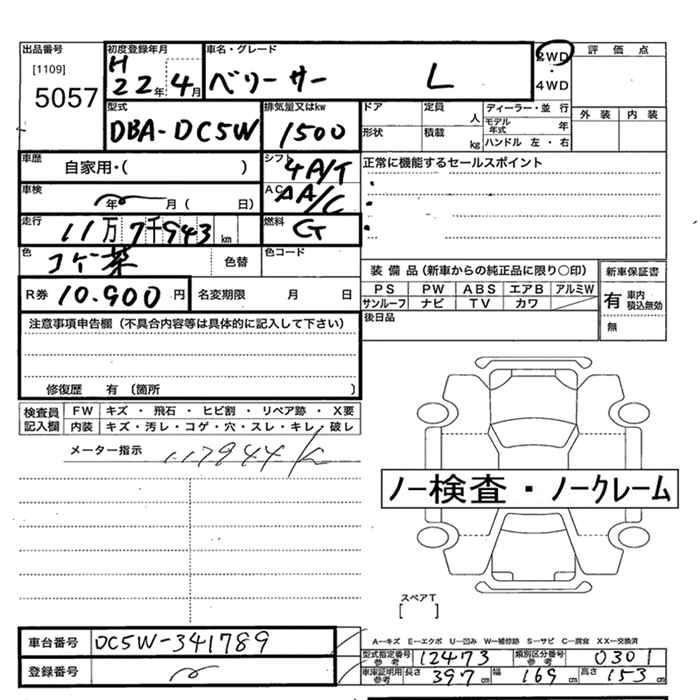 出品番号 初度登録年月 車名・グレード 2WD 評価点
[1109] H
5057 22年 4月 ベリーサ L 4WD
型式 排気量又はkw ドア 定員 人 ディーラー・並 行 外装 内装
DBA-DC5W 1500 形状 積載 kg モデル年式 年
ハンドル 左・右
車歴 自家用・( ) シフト 4A/T 正常に機能するセールスポイント
車検 年 月 ( 日) AC AA/C
走行 11万7千943km 燃料 G
色 色替 色コード
R券 10.900円 名変期限 月 日
装備品(新車からの純正品に限り○印) 新車保証書
PS PW ABS エアB アルミW 有 車内 積込無効
サンルーフ ナビ TV カワ 無
後日品
注意事項申告欄(不具合内容等は具体的に記入して下さい)
修復歴 有 (箇所 )
検査員記入欄 FW キズ・飛石・ヒビ割・リペア跡・X要
内装 キズ・汚レ・コゲ・穴・スレ・キレ・破レ
メーター指示 117944K
ノー検査・ノークレーム
スペアT
[ ]
車台番号 DC5W-341789
登録番号
A-キズ E-エクボ U-凹み W-補修跡 S-サビ C-腐食 XX-交換済
型式指定番号 参考 12473 類別区分番号 参考 0301
車庫証明用 参考 長さ 397cm 幅 169cm 高さ 153cm